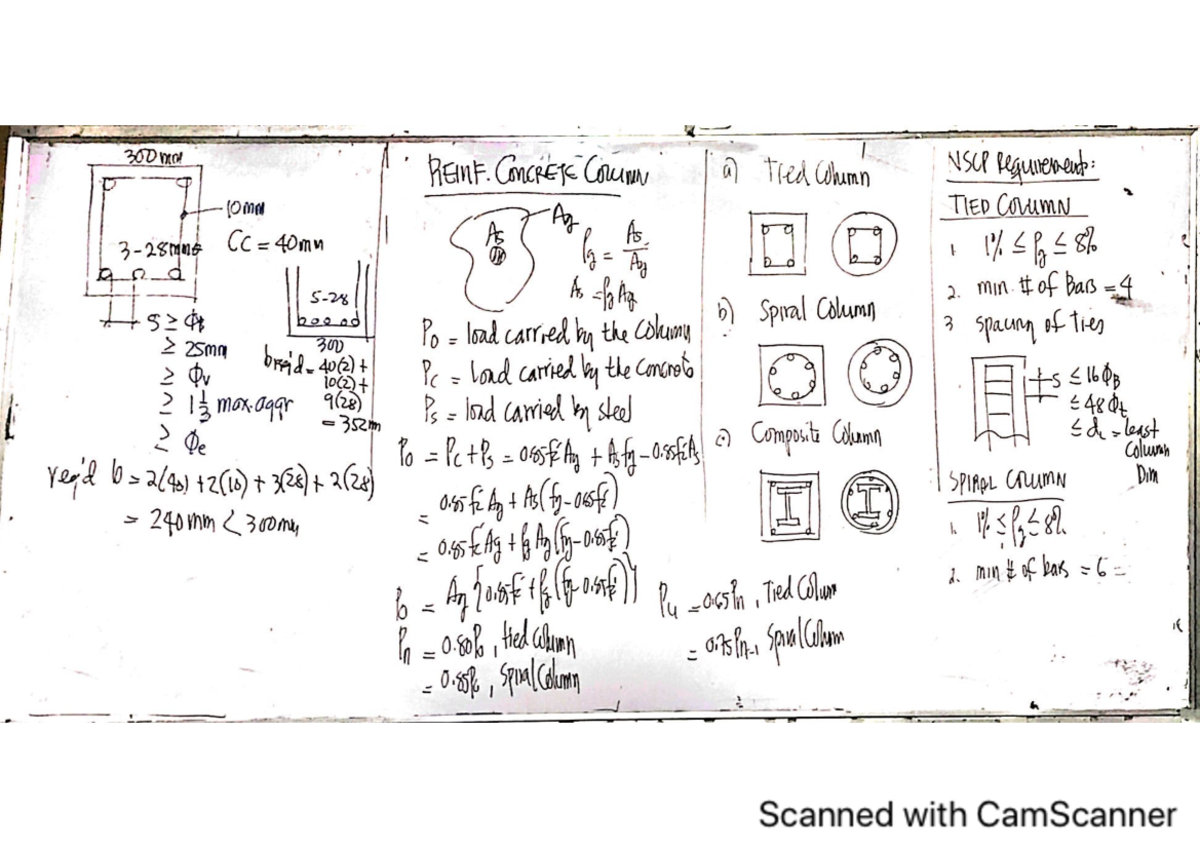 300 mm
10mm
3-28mmφ
CC = 40mm
S ≥ ΦB
≥ 25mm
≥ Φv
≥ 1 1/3 max. aggr
≥ Φe
5-28
300
b req'd = 40(2) +
10(2) +
9(28)
= 352m
req'd b = 2(40) + 2(10) + 3(28) + 2(28)
= 240mm < 300mm
REINF. CONCRETE COLUMN
As
Ag
ρg = As/Ag
As = ρg Ag
Po = load carried by the column
Pc = load carried by the concrete
Ps = load carried by steel
Po = Pc + Ps = 0.85fc'Ag + Asfy - 0.85fc'As
= 0.85fc'Ag + As(fy - 0.85fc')
= 0.85fc'Ag + ρg Ag(fy - 0.85fc')
Po = Ag {0.85fc' + ρg (fy - 0.85fc')}
Pn = 0.80Po, tied column
= 0.85Po, Spiral Column
a) Tied Column
b) Spiral Column
c) Composite Column
Pu = 0.65Pn, Tied Column
= 0.75Pn, Spiral Column
NSCP Requirement:
TIED COLUMN
1. 1% ≤ ρg ≤ 8%
2. min. # of Bars = 4
3 spacing of ties
S ≤ 16ΦB
≤ 48Φt
≤ dL = least
Column
Dim
SPIRAL COLUMN
1. 1% ≤ ρg ≤ 8%
2. min # of bars = 6
Scanned with CamScanner